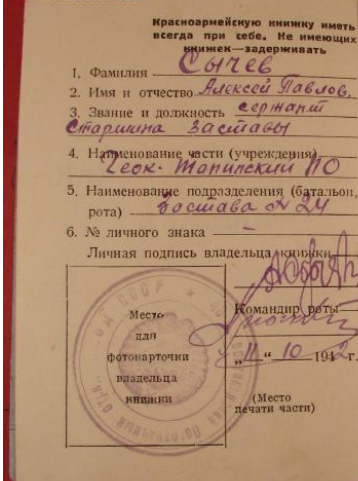 Красноармейскую книжку иметь
всегда при себе. Не имеющих
книжек—задерживать
1. Фамилия Сычев
2. Имя и отчество Алексей Павлов.
3. Звание и должность сержант
Старшина заставы
4. Наименование части (учреждения)
ПО
5. Наименование подразделения (батальон,
рота) Застава № 24
6. № личного знака —
Личная подпись владельца книжки
Место
для
фотокарточки
владельца
книжки
Командир роты
„11“ 10 1942г.
(Место
печати части)